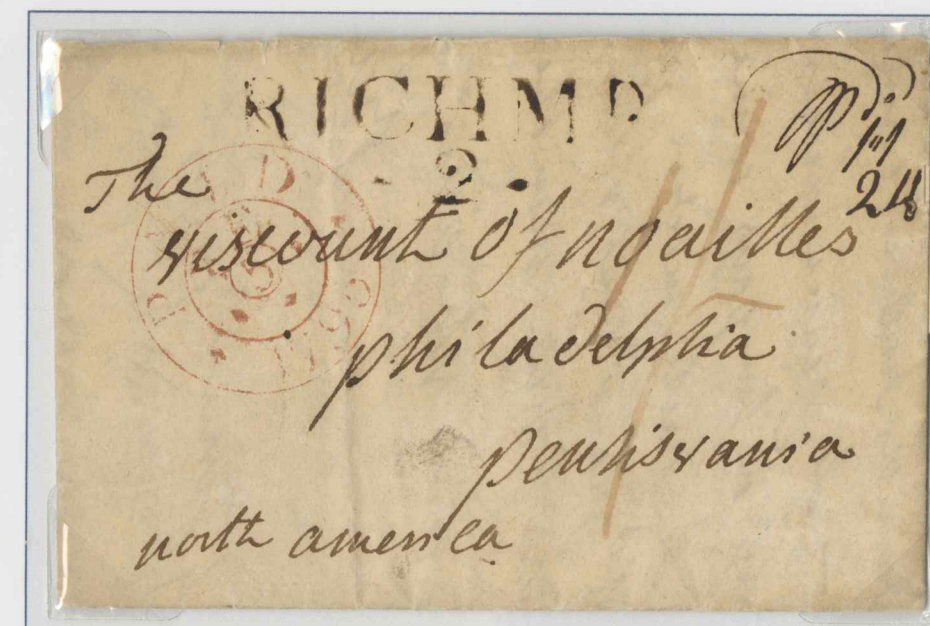 RICHMD.
2
The
viscount of noailles
philadelphia
pensisvania
north america
24
PAID